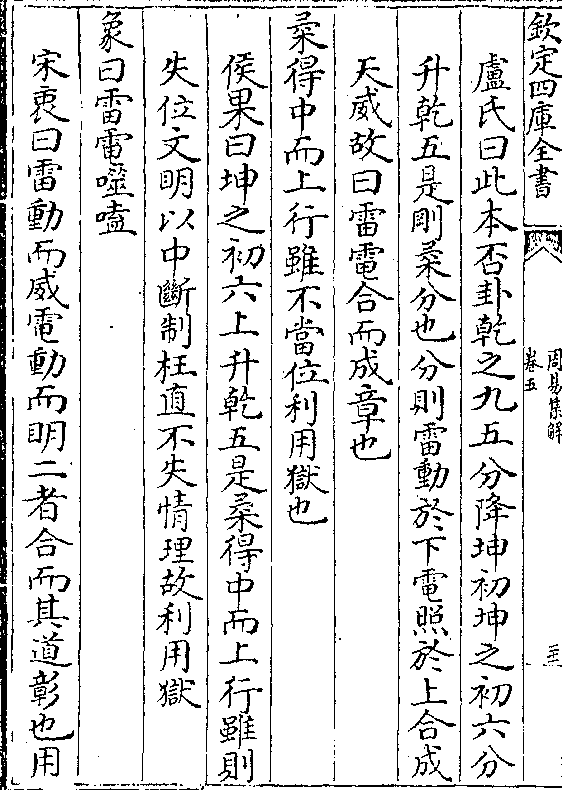 欽定四庫全書
周易集解
卷五
盧氏曰此本否卦乾之九五分降坤初坤之初六分
升乾五是剛柔分也分則雷動於下電照於上合成
天威故曰雷電合而成章也
柔得中而上行雖不當位利用獄也
侯果曰坤之初六上升乾五是柔得中而上行雖則
失位文明以中斷制枉直不失情理故利用獄
象曰雷電噬嗑
宋衷曰雷動而威電動而明二者合而其道彰也用